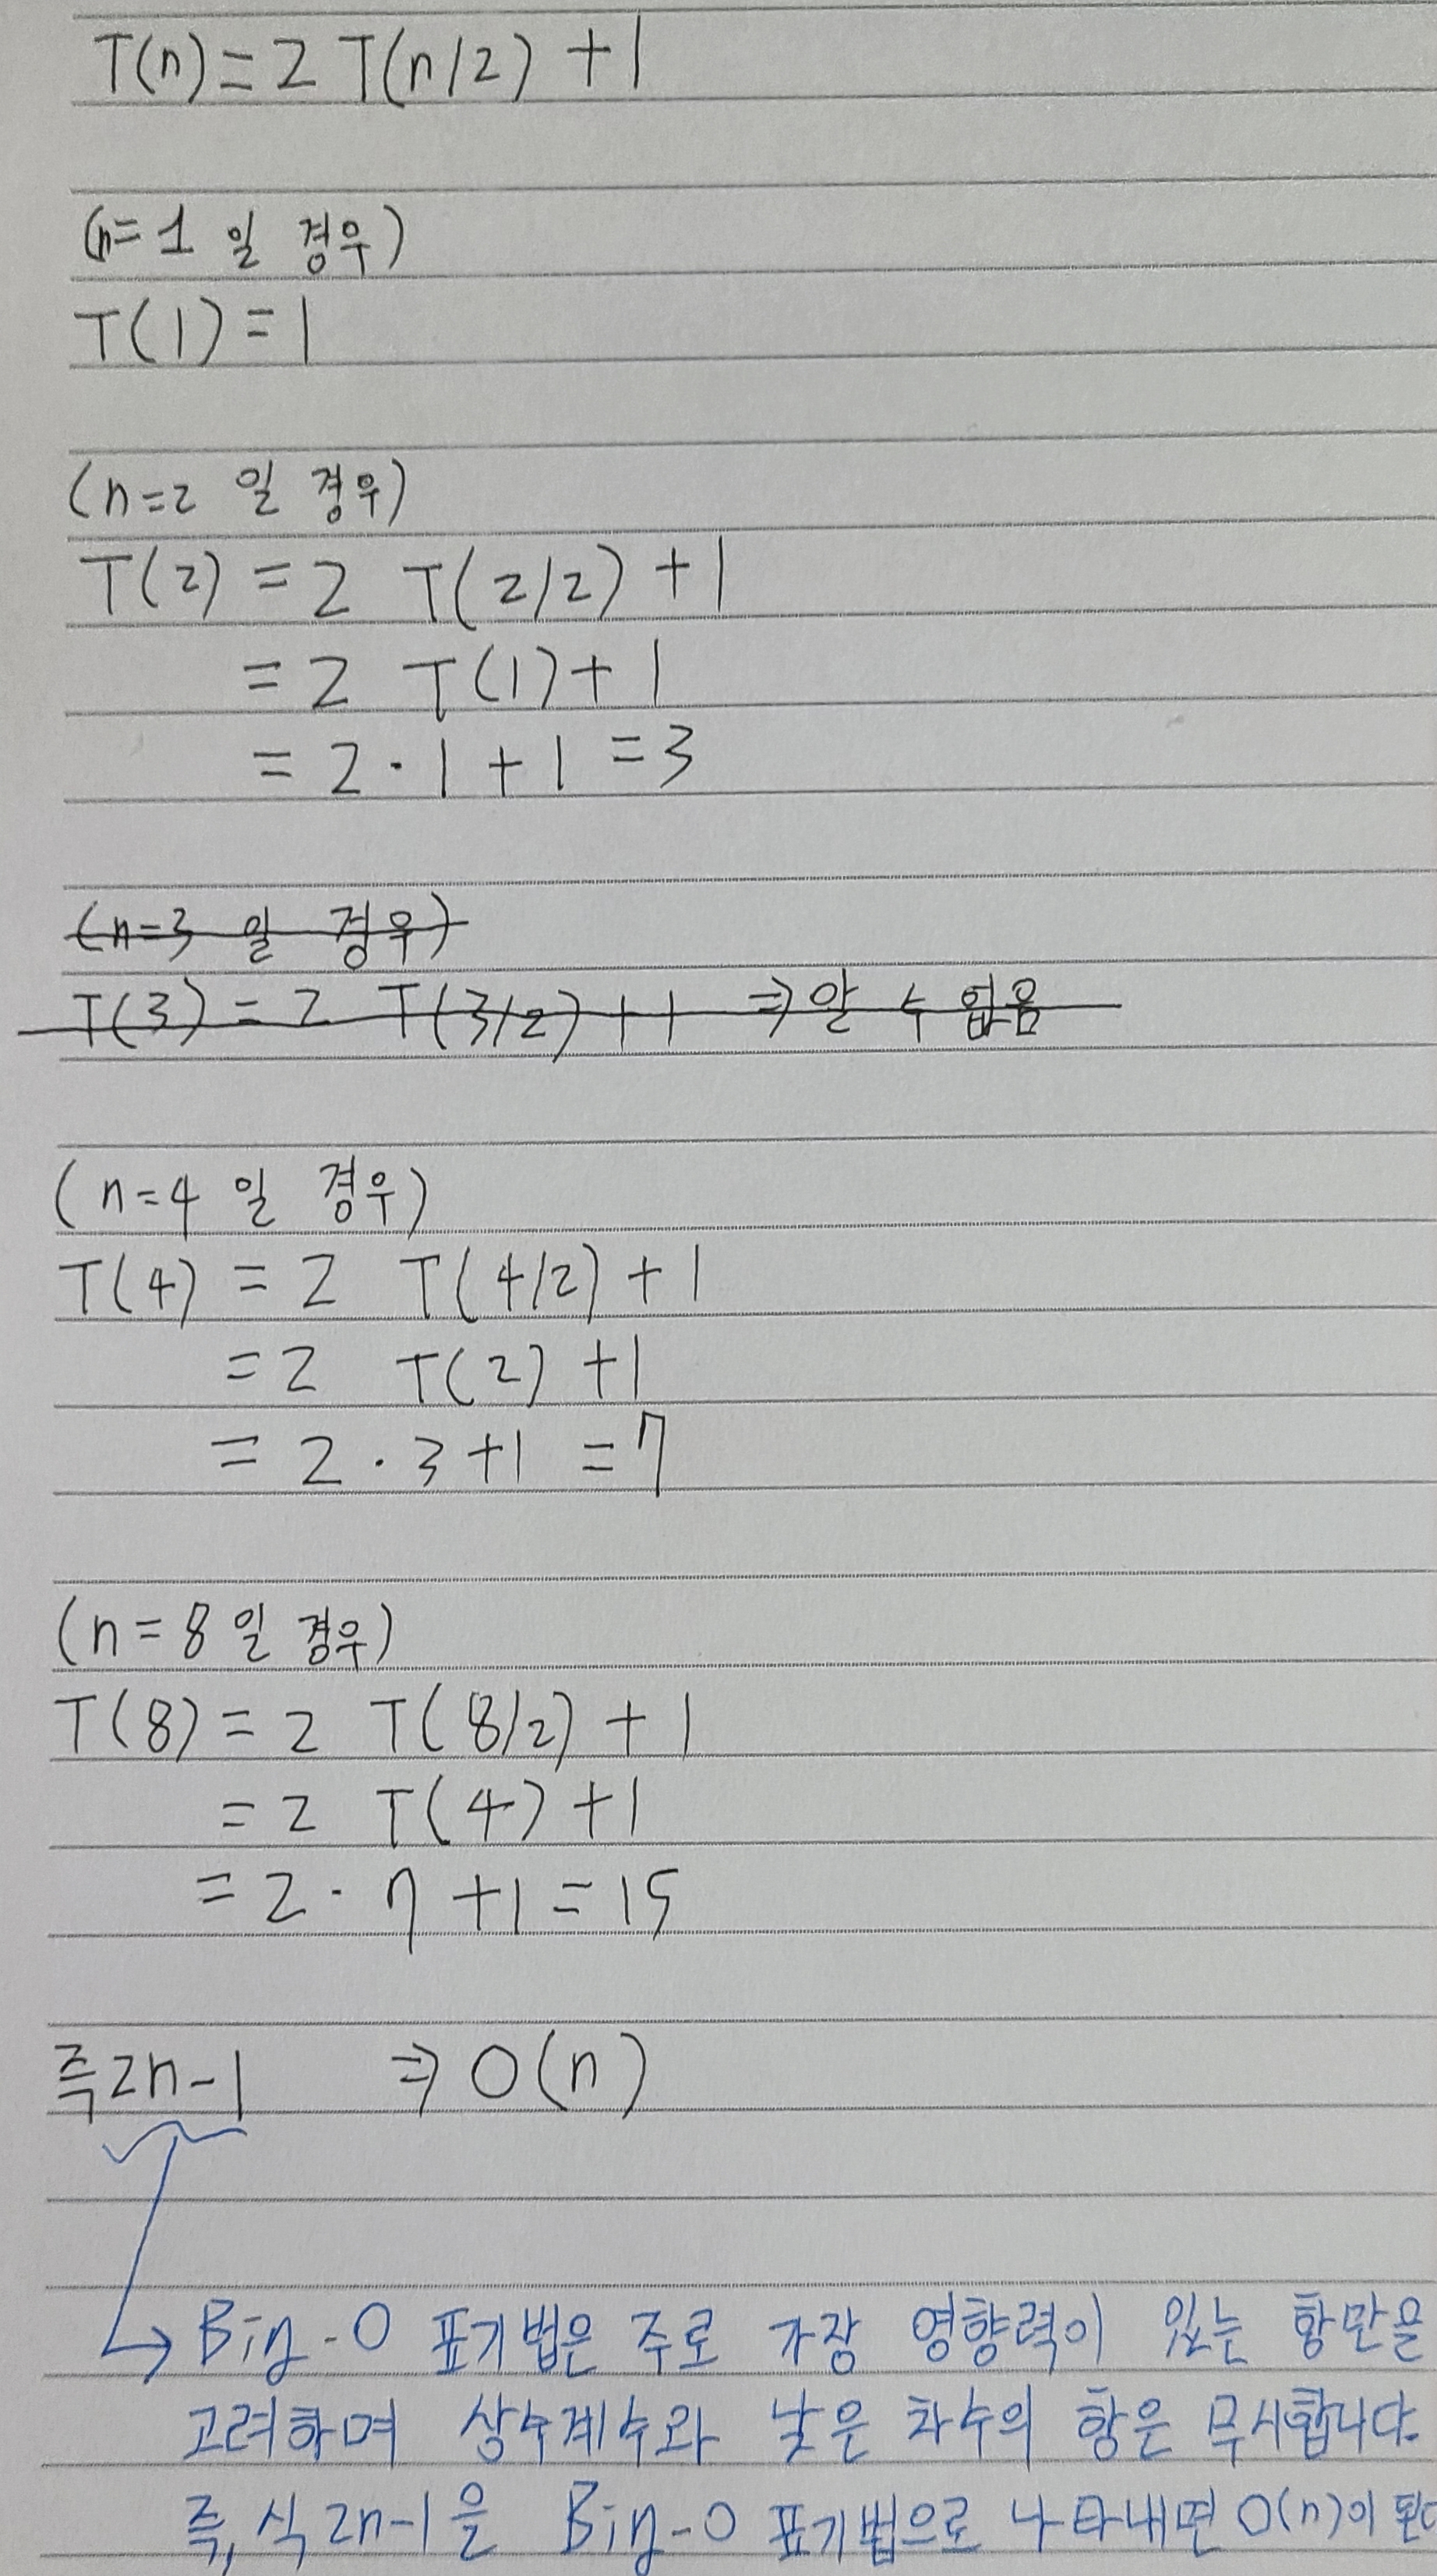 T(n) = 2 T(n/2) + 1
(n=1 일 경우)
T(1) = 1
(n=2 일 경우)
T(2) = 2 T(2/2) + 1
= 2 T(1) + 1
= 2 · 1 + 1 = 3
(n=3 일 경우)
T(3) = 2 T(3/2) + 1 ⇒ 알 수 없음
(n=4 일 경우)
T(4) = 2 T(4/2) + 1
= 2 T(2) + 1
= 2 · 3 + 1 = 7
(n=8 일 경우)
T(8) = 2 T(8/2) + 1
= 2 T(4) + 1
= 2 · 7 + 1 = 15
즉 2n-1 ⇒ O(n)
→ Big-O 표기법은 주로 가장 영향력이 있는 항만을
고려하며 상수계수와 낮은 차수의 항은 무시합니다.
즉, 식 2n-1을 Big-O 표기법으로 나타내면 O(n)이